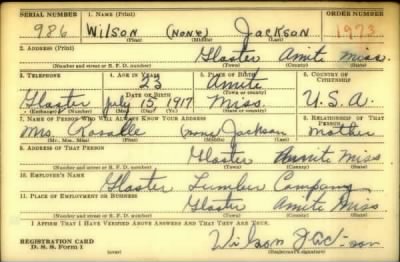 SERIAL NUMBER 1. NAME (Print) ORDER NUMBER
986 Wilson (None) Jackson 1973
(First) (Middle) (Last)
2. ADDRESS (Print)
Gloster Amite Miss.
(Number and street or R. F. D. number) (Town) (County) (State)
3. TELEPHONE 4. AGE IN YEARS 5. PLACE OF BIRTH 6. COUNTRY OF CITIZENSHIP
23 Amite
DATE OF BIRTH (Town or county)
Gloster July 15 1917 Miss. U.S.A.
(Exchange) (Number) (Mo.) (Day) (Yr.) (State or country)
7. NAME OF PERSON WHO WILL ALWAYS KNOW YOUR ADDRESS 8. RELATIONSHIP OF THAT PERSON
Mrs. (none) Jackson mother
(Mr., Mrs., Miss) (First) (Middle) (Last)
9. ADDRESS OF THAT PERSON
Gloster Amite Miss
(Number and street or R. F. D. number) (Town) (County) (State)
10. EMPLOYER'S NAME
Gloster Lumber Company
11. PLACE OF EMPLOYMENT OR BUSINESS
Gloster Amite Miss
(Number and street or R. F. D. number) (Town) (County) (State)
I AFFIRM THAT I HAVE VERIFIED ABOVE ANSWERS AND THAT THEY ARE TRUE.
REGISTRATION CARD
D. S. S. Form 1 (over) Wilson Jackson
(Registrant's signature)